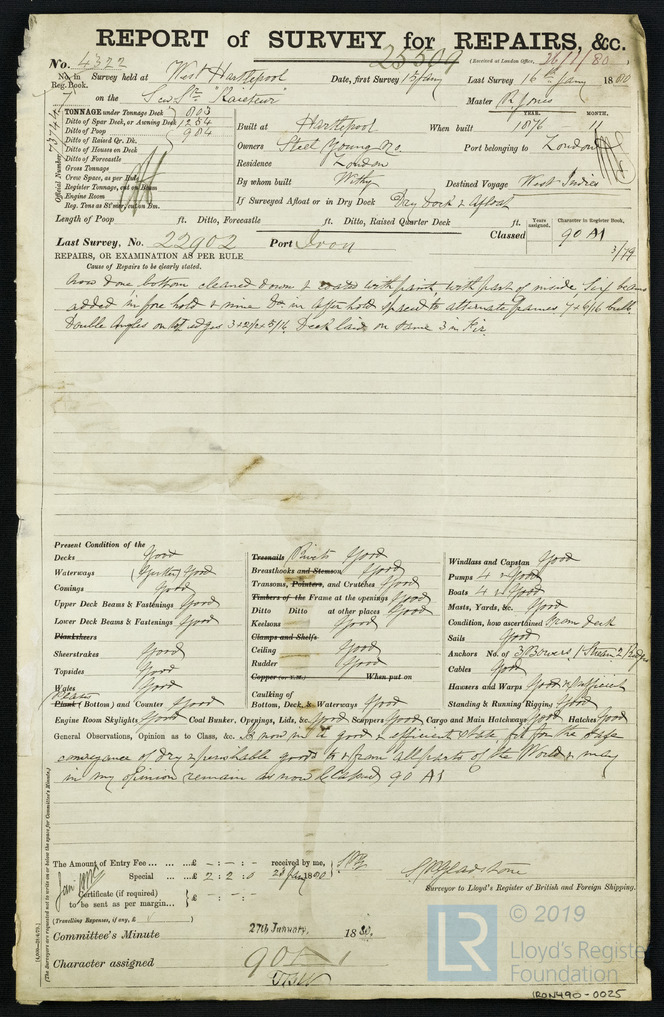 REPORT of SURVEY for REPAIRS, &c.
25509
No. 4322
(Received at London Office, 26/1/80
No. in Reg. Book.
Survey held at West Hartlepool
Date, first Survey 15 Jany
Last Survey 16th Jany 1880
on the Screw Sr "Kaieteur"
Master R Jones
TONNAGE under Tonnage Deck 803
Ditto of Spar Deck, or Awning Deck 1284
Ditto of Poop 984
Ditto of Raised Qr. Dk.
Ditto of Houses on Deck
Ditto of Forecastle
Gross Tonnage
Crew Space, as per Rule
Register Tonnage, cut on Beam
Engine Room
Reg. Tons as St'mer, cut on Bm.
Official Number
Built at Hartlepool
When built YEAR. 1876 MONTH. 11
Owners Steel Young & Co.
Port belonging to London
Residence London
By whom built Withy
Destined Voyage West Indies
If Surveyed Afloat or in Dry Dock Dry Dock & Afloat
Length of Poop ft. Ditto, Forecastle ft. Ditto, Raised Quarter Deck ft.
Years assigned.
Character in Register Book,
Classed 90 A1
3/79
Last Survey, No. 22902 Port Iron
REPAIRS, OR EXAMINATION AS PER RULE
Cause of Repairs to be clearly stated.
Now done, bottom cleaned down & coated with paint, with part of inside, Six beams
added in fore hold & nine Do. in after hold spaced to alternate frames 7 x 6/16 bulb
Double Angles on top edges 3 x 2 1/2 x 5/16. Deck laid on same 3 in Fir.
Present Condition of the
Decks Good
Waterways (Gutter) Good
Comings Good
Upper Deck Beams & Fastenings Good
Lower Deck Beams & Fastenings Good
Planksheers
Sheerstrakes Good
Topsides Good
Wales Good
Plates
Plank (Bottoms) and Counter Good
Treenails Rivets Good
Breasthooks and Stemson Good
Transoms, Pointers, and Crutches Good
Timbers of the Frame at the openings Good
Ditto Ditto at other places Good
Keelsons Good
Clamps and Shelfs
Ceiling Good
Rudder Good
Copper (or Y.M.) When put on
Caulking of
Bottom, Deck, & Waterways Good
Windlass and Capstan Good
Pumps 4 in Good
Boats 4 in Good
Masts, Yards, &c. Good
Condition, how ascertained From deck
Sails Good
Anchors No. of 3 Bowers 1 Stream 2 Kedges
Cables Good
Hawsers and Warps Good & sufficient
Standing & Running Rigging Good
Engine Room Skylights Good Coal Bunker, Openings, Lids, &c. Good Scuppers Good Cargo and Main Hatchways Good Hatches Good
General Observations, Opinion as to Class, &c. Is now in a good & efficient state, fit for the safe
conveyance of dry & perishable goods to & from all parts of the World & may
in my opinion remain as now Classed 90 A1
(The Surveyors are requested not to write on or below the space for Committee's Minute.)
The Amount of Entry Fee ... ... ...£ - : - : - received by me,
Special ... ...£ 2 : 2 : 0 23 Jany 1880
Certificate (if required) to be sent as per margin... £ - : - : -
(Travelling Expenses, if any, £ )
Surveyor to Lloyd's Register of British and Foreign Shipping.
S W Gladstone
Committee's Minute 27th January, 1880.
Character assigned 90 A 1
© 2019
LR
Lloyd's Register
Foundation
IRON490-0025